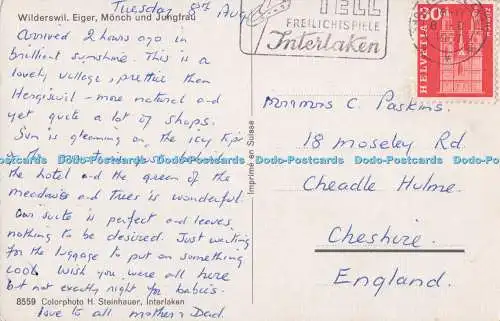 Wilderswil. Eiger, Mönch und Jungfrau
Tuesday 8th Aug
Arrived 2 hours ago in
brilliant sunshine. This is a
lovely village, prettier than
Hergiswil - more natural and
yet quite a lot of shops.
Sun is gleaming on the icy tips
of the
the hotel and the green of the
meadows and trees is wonderful.
Our suite is perfect and leaves
nothing to be desired. Just waiting
for the luggage to put on something
cool. Wish you were all here
but not exactly right for babies.
love to all mother & Dad.
8559 Colorphoto H. Steinhauer, Interlaken
Imprimé en Suisse
TELL
FREILICHTSPIELE
Interlaken
30
HELVETIA
C. Paskins.
18 Moseley Rd
Cheadle Hulme.
Cheshire.
England.
Dodo-Postcards Dodo-Postcards Dodo-Postcards Dodo-Postcards Dodo-Postcards